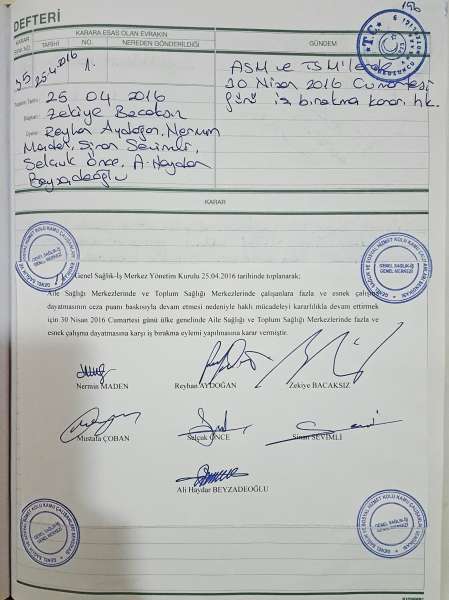 DEFTERİ
156
KARAR
KARARA ESAS OLAN EVRAKIN
GÜNDEM
SIRA NO.
TARİHİ
NO.
NEREDEN GÖNDERİLDİĞİ
35
25.4.2016
1.
ASM ve TSM'lerde
30 Nisan 2016 Cumartesi
günü iş bırakma kararı hk.
Toplantı Tarihi:
25 04 2016
Başkan:
Zekiye Bacaksız
Üyeler:
Reyhan Aydoğan, Nermin
Maden, Sinan Sevimli,
Selçuk Önce, A. Haydar
Beyzadeoğlu
KARAR
Genel Sağlık-İş Merkez Yönetim Kurulu 25.04.2016 tarihinde toplanarak;
Aile Sağlığı Merkezlerinde ve Toplum Sağlığı Merkezlerinde çalışanlara fazla ve esnek çalışma
dayatmasının ceza puanı baskısıyla devam etmesi nedeniyle haklı mücadeleyi kararlılıkla devam ettirmek
için 30 Nisan 2016 Cumartesi günü ülke genelinde Aile Sağlığı ve Toplum Sağlığı Merkezlerinde fazla ve
esnek çalışma dayatmasına karşı iş bırakma eylemi yapılmasına karar vermiştir.
Nermin MADEN
Reyhan AYDOĞAN
Zekiye BACAKSIZ
Mustafa ÇOBAN
Selçuk ÖNCE
Sinan SEVİMLİ
Ali Haydar BEYZADEOĞLU
GENEL SAĞLIK-İŞ
GENEL MERKEZİ
GENEL SAĞLIK-İŞ
GENEL MERKEZİ
GENEL SAĞLIK-İŞ
GENEL MERKEZİ
GENEL SAĞLIK-İŞ
GENEL MERKEZİ